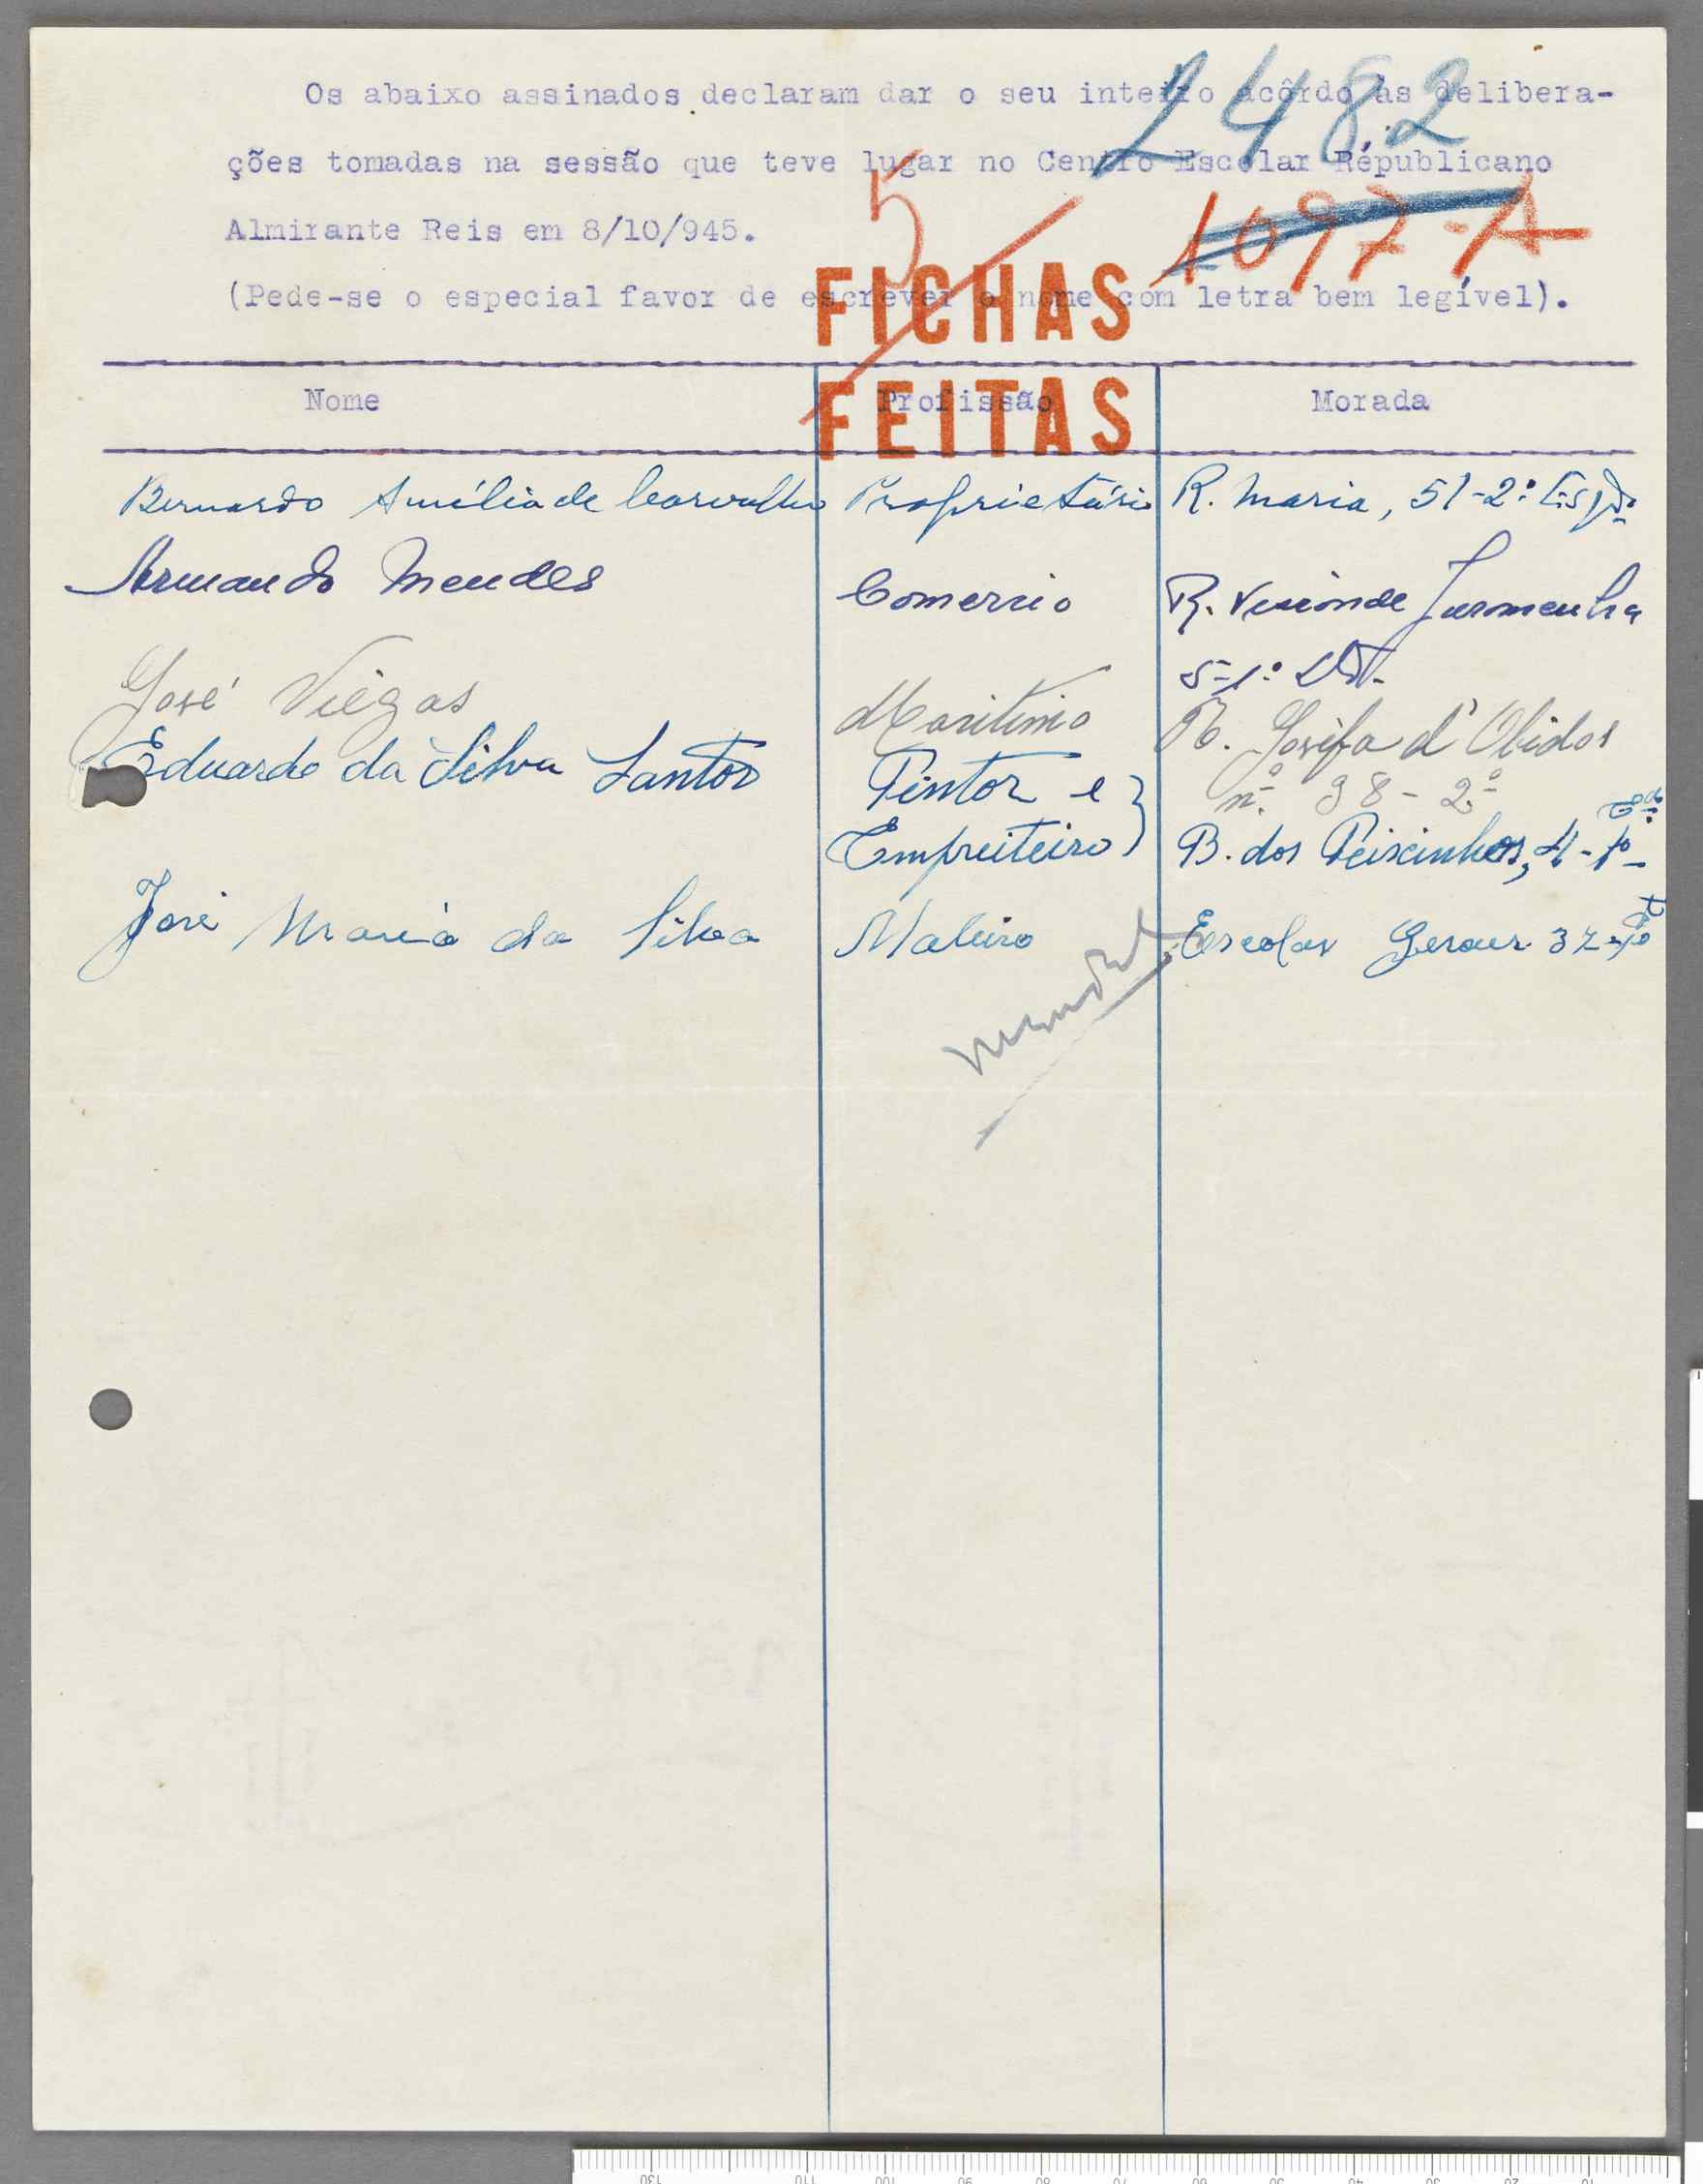 2482
Os abaixo assinados declaram dar o seu inteiro acôrdo às delibera-
ções tomadas na sessão que teve lugar no Centro Escolar Républicano
5
1097-A
Almirante Reis em 8/10/945.
FICHAS
(Pede-se o especial favor de escrever o nome com letra bem legível).
FEITAS
Nome Profissão Morada
Bernardo Amélia de Carvalho Proprietário R. Maria, 51-2º Esqdo
Armando Mendes Comercio R. Visconde Juromenha
5-1º Dt.
José Viegas Maritimo R. Josefa d'Obidos
nº 98-2º
Eduardo da Silva Santos Pintor e
Empreiteiro } B. dos Peixinhos, 4-1º Edo
José Maria da Silva Maleiro Escolas Gerais 37